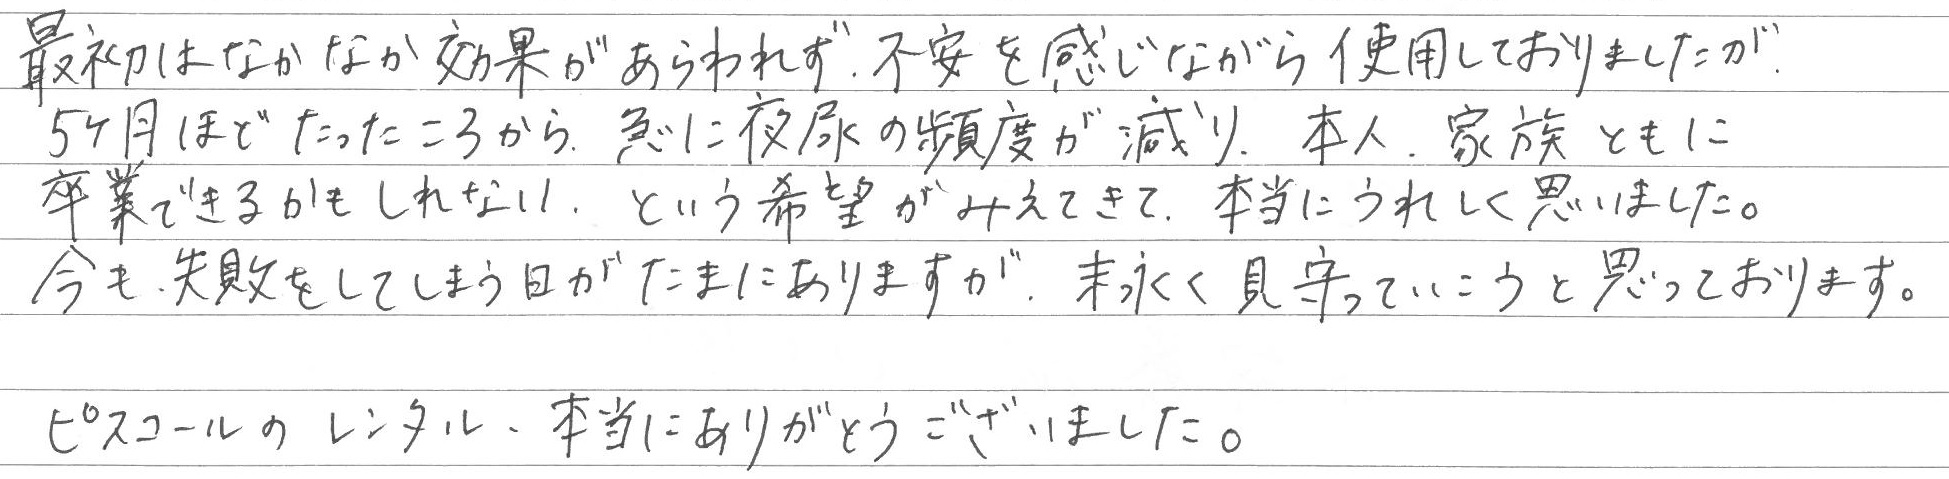 最初はなかなか効果があらわれず、不安を感じながら使用しておりましたが、
5ケ月ほどたったころから、急に夜尿の頻度が減り、本人、家族ともに
卒業できるかもしれない、という希望がみえてきて、本当にうれしく思いました。
今も、失敗をしてしまう日がたまにありますが、末永く見守っていこうと思っております。
ピスコールのレンタル、本当にありがとうございました。